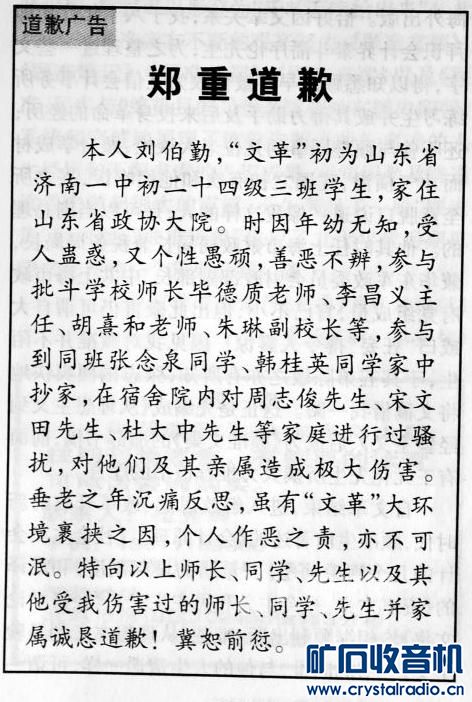 道歉广告
郑重道歉
本人刘伯勤，“文革”初为山东省
济南一中初二十四级三班学生，家住
山东省政协大院。时因年幼无知，受
人蛊惑，又个性愚顽，善恶不辨，参与
批斗学校师长毕德质老师、李昌义主
任、胡熹和老师、朱琳副校长等，参与
到同班张念泉同学、韩桂英同学家中
抄家，在宿舍院内对周志俊先生、宋文
田先生、杜大中先生等家庭进行过骚
扰，对他们及其亲属造成极大伤害。
垂老之年沉痛反思，虽有“文革”大环
境裹挟之因，个人作恶之责，亦不可
泯。特向以上师长、同学、先生以及其
他受我伤害过的师长、同学、先生并家
属诚恳道歉！冀恕前愆。
矿石收音机
www.crystalradio.cn